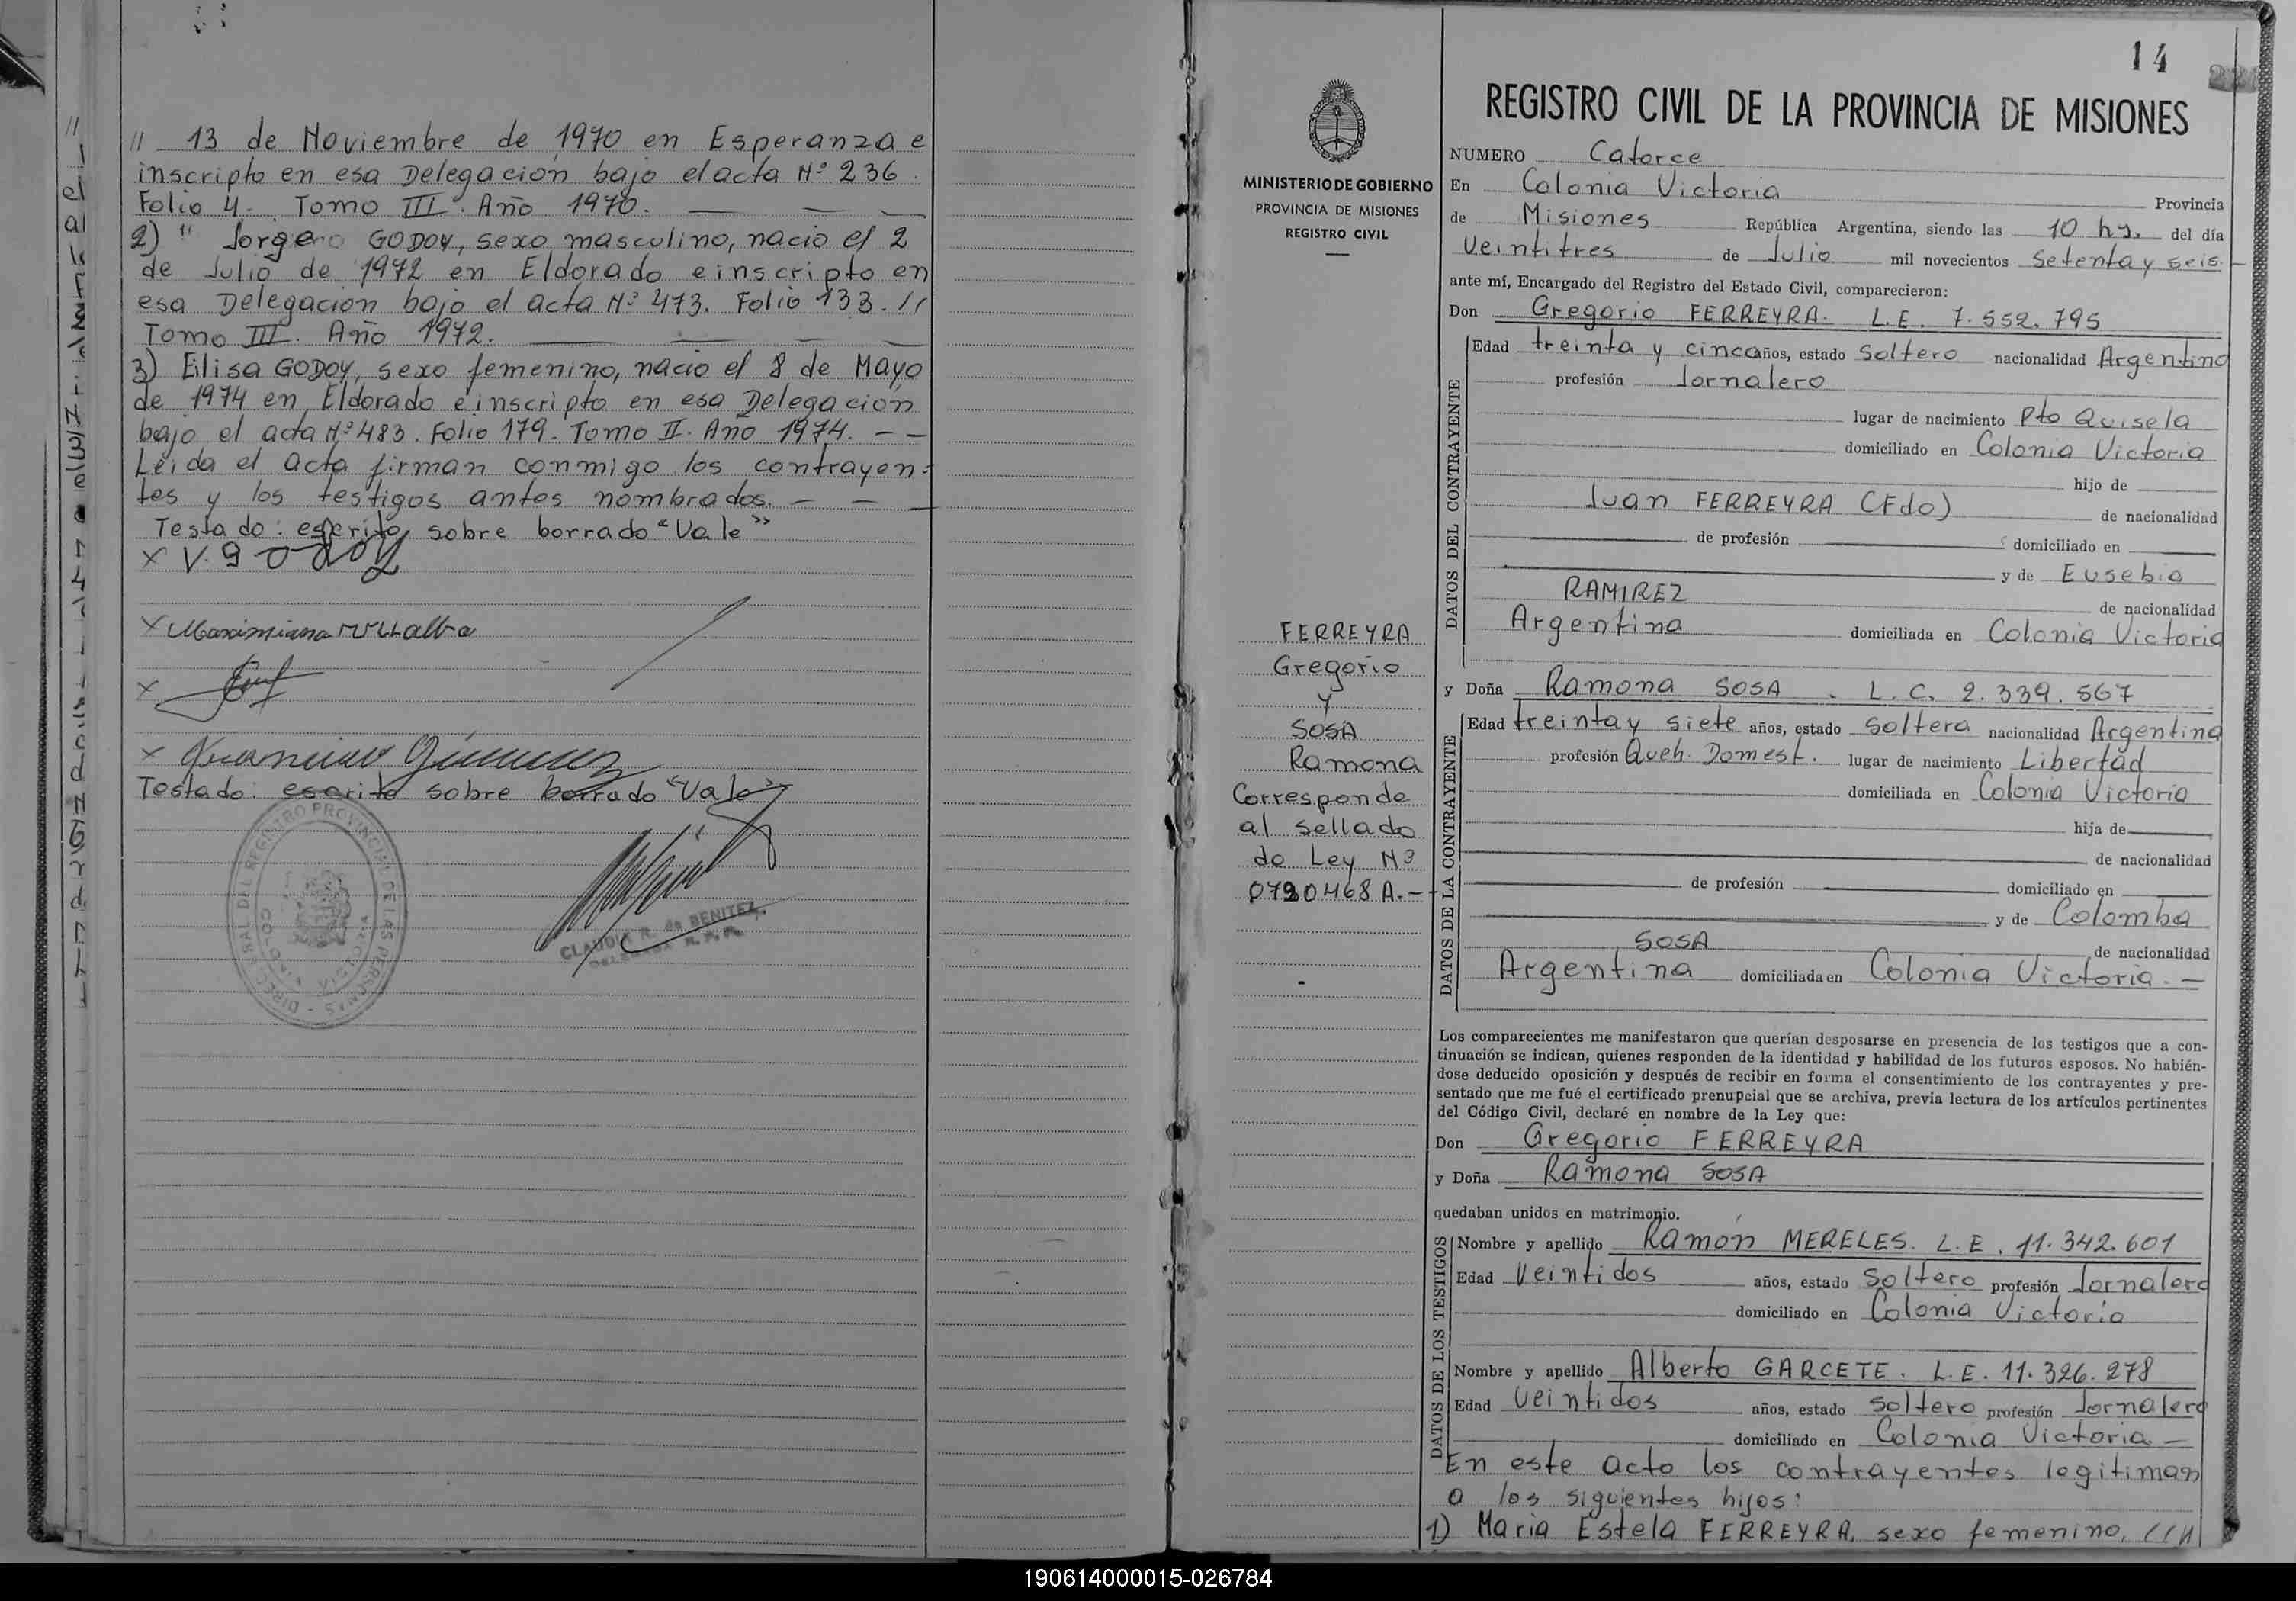 // 13 de Noviembre de 1970 en Esperanza e
inscripto en esa Delegación bajo el acta Nº 236.
Folio 4. Tomo III. Año 1970.
2) " Jorge GODOY, sexo masculino, nacio el 2
de Julio de 1972 en Eldorado e inscripto en
esa Delegacion bajo el acta Nº 473. Folio 133. //
Tomo III. Año 1972.
3) Elisa GODOY, sexo femenino, nacio el 8 de Mayo
de 1974 en Eldorado e inscripto en esa Delegacion
bajo el acta Nº 483. Folio 179. Tomo II. Año 1974. - -
Leida el acta firman conmigo los contrayen-
tes y los testigos antes nombrados. - -
Testado: escrito sobre borrado "Vale"
x V. godoy
x Maximiana Villalba
x
x Francisco Gimenez
Testado: escrito sobre borrado "Vale"
CLAUDIA R. de BENITEZ
14
REGISTRO CIVIL DE LA PROVINCIA DE MISIONES
MINISTERIO DE GOBIERNO
PROVINCIA DE MISIONES
REGISTRO CIVIL
FERREYRA
Gregorio
y
SOSA
Ramona
Corresponde
al sellado
de Ley Nº
0720468 A.-
NUMERO Catorce
En Colonia Victoria Provincia
de Misiones República Argentina, siendo las 10 hs. del día
Veintitres de Julio mil novecientos setenta y seis.
ante mí, Encargado del Registro del Estado Civil, comparecieron:
Don Gregorio FERREYRA. L.E. 7.552.795
DATOS DEL CONTRAYENTE
Edad treinta y cinco años, estado Soltero nacionalidad Argentino
profesión Jornalero
lugar de nacimiento Pto Quisela
domiciliado en Colonia Victoria
hijo de
Juan FERREYRA (Fdo) de nacionalidad
de profesión domiciliado en
y de Eusebia
RAMIREZ de nacionalidad
Argentina domiciliada en Colonia Victoria
y Doña Ramona SOSA. L.C. 2.339.567
DATOS DE LA CONTRAYENTE
Edad treinta y siete años, estado soltera nacionalidad Argentina
profesión Queh. Domest. lugar de nacimiento Libertad
domiciliada en Colonia Victoria
hija de
de nacionalidad
de profesión domiciliado en
y de Colomba
SOSA de nacionalidad
Argentina domiciliada en Colonia Victoria. -
Los comparecientes me manifestaron que querían desposarse en presencia de los testigos que a con-
tinuación se indican, quienes responden de la identidad y habilidad de los futuros esposos. No habién-
dose deducido oposición y después de recibir en forma el consentimiento de los contrayentes y pre-
sentado que me fué el certificado prenupcial que se archiva, previa lectura de los artículos pertinentes
del Código Civil, declaré en nombre de la Ley que:
Don Gregorio FERREYRA
y Doña Ramona SOSA
quedaban unidos en matrimonio.
DATOS DE LOS TESTIGOS
Nombre y apellido Ramón MERELES. L.E. 11.342.601
Edad Veintidos años, estado Soltero profesión Jornalero
domiciliado en Colonia Victoria
Nombre y apellido Alberto GARCETE. L.E. 11.326.278
Edad Veintidos años, estado Soltero profesión Jornalero
domiciliado en Colonia Victoria -
En este acto los contrayentes legitiman
a los siguientes hijos:
1) Maria Estela FERREYRA, sexo femenino, ///
190614000015-026784